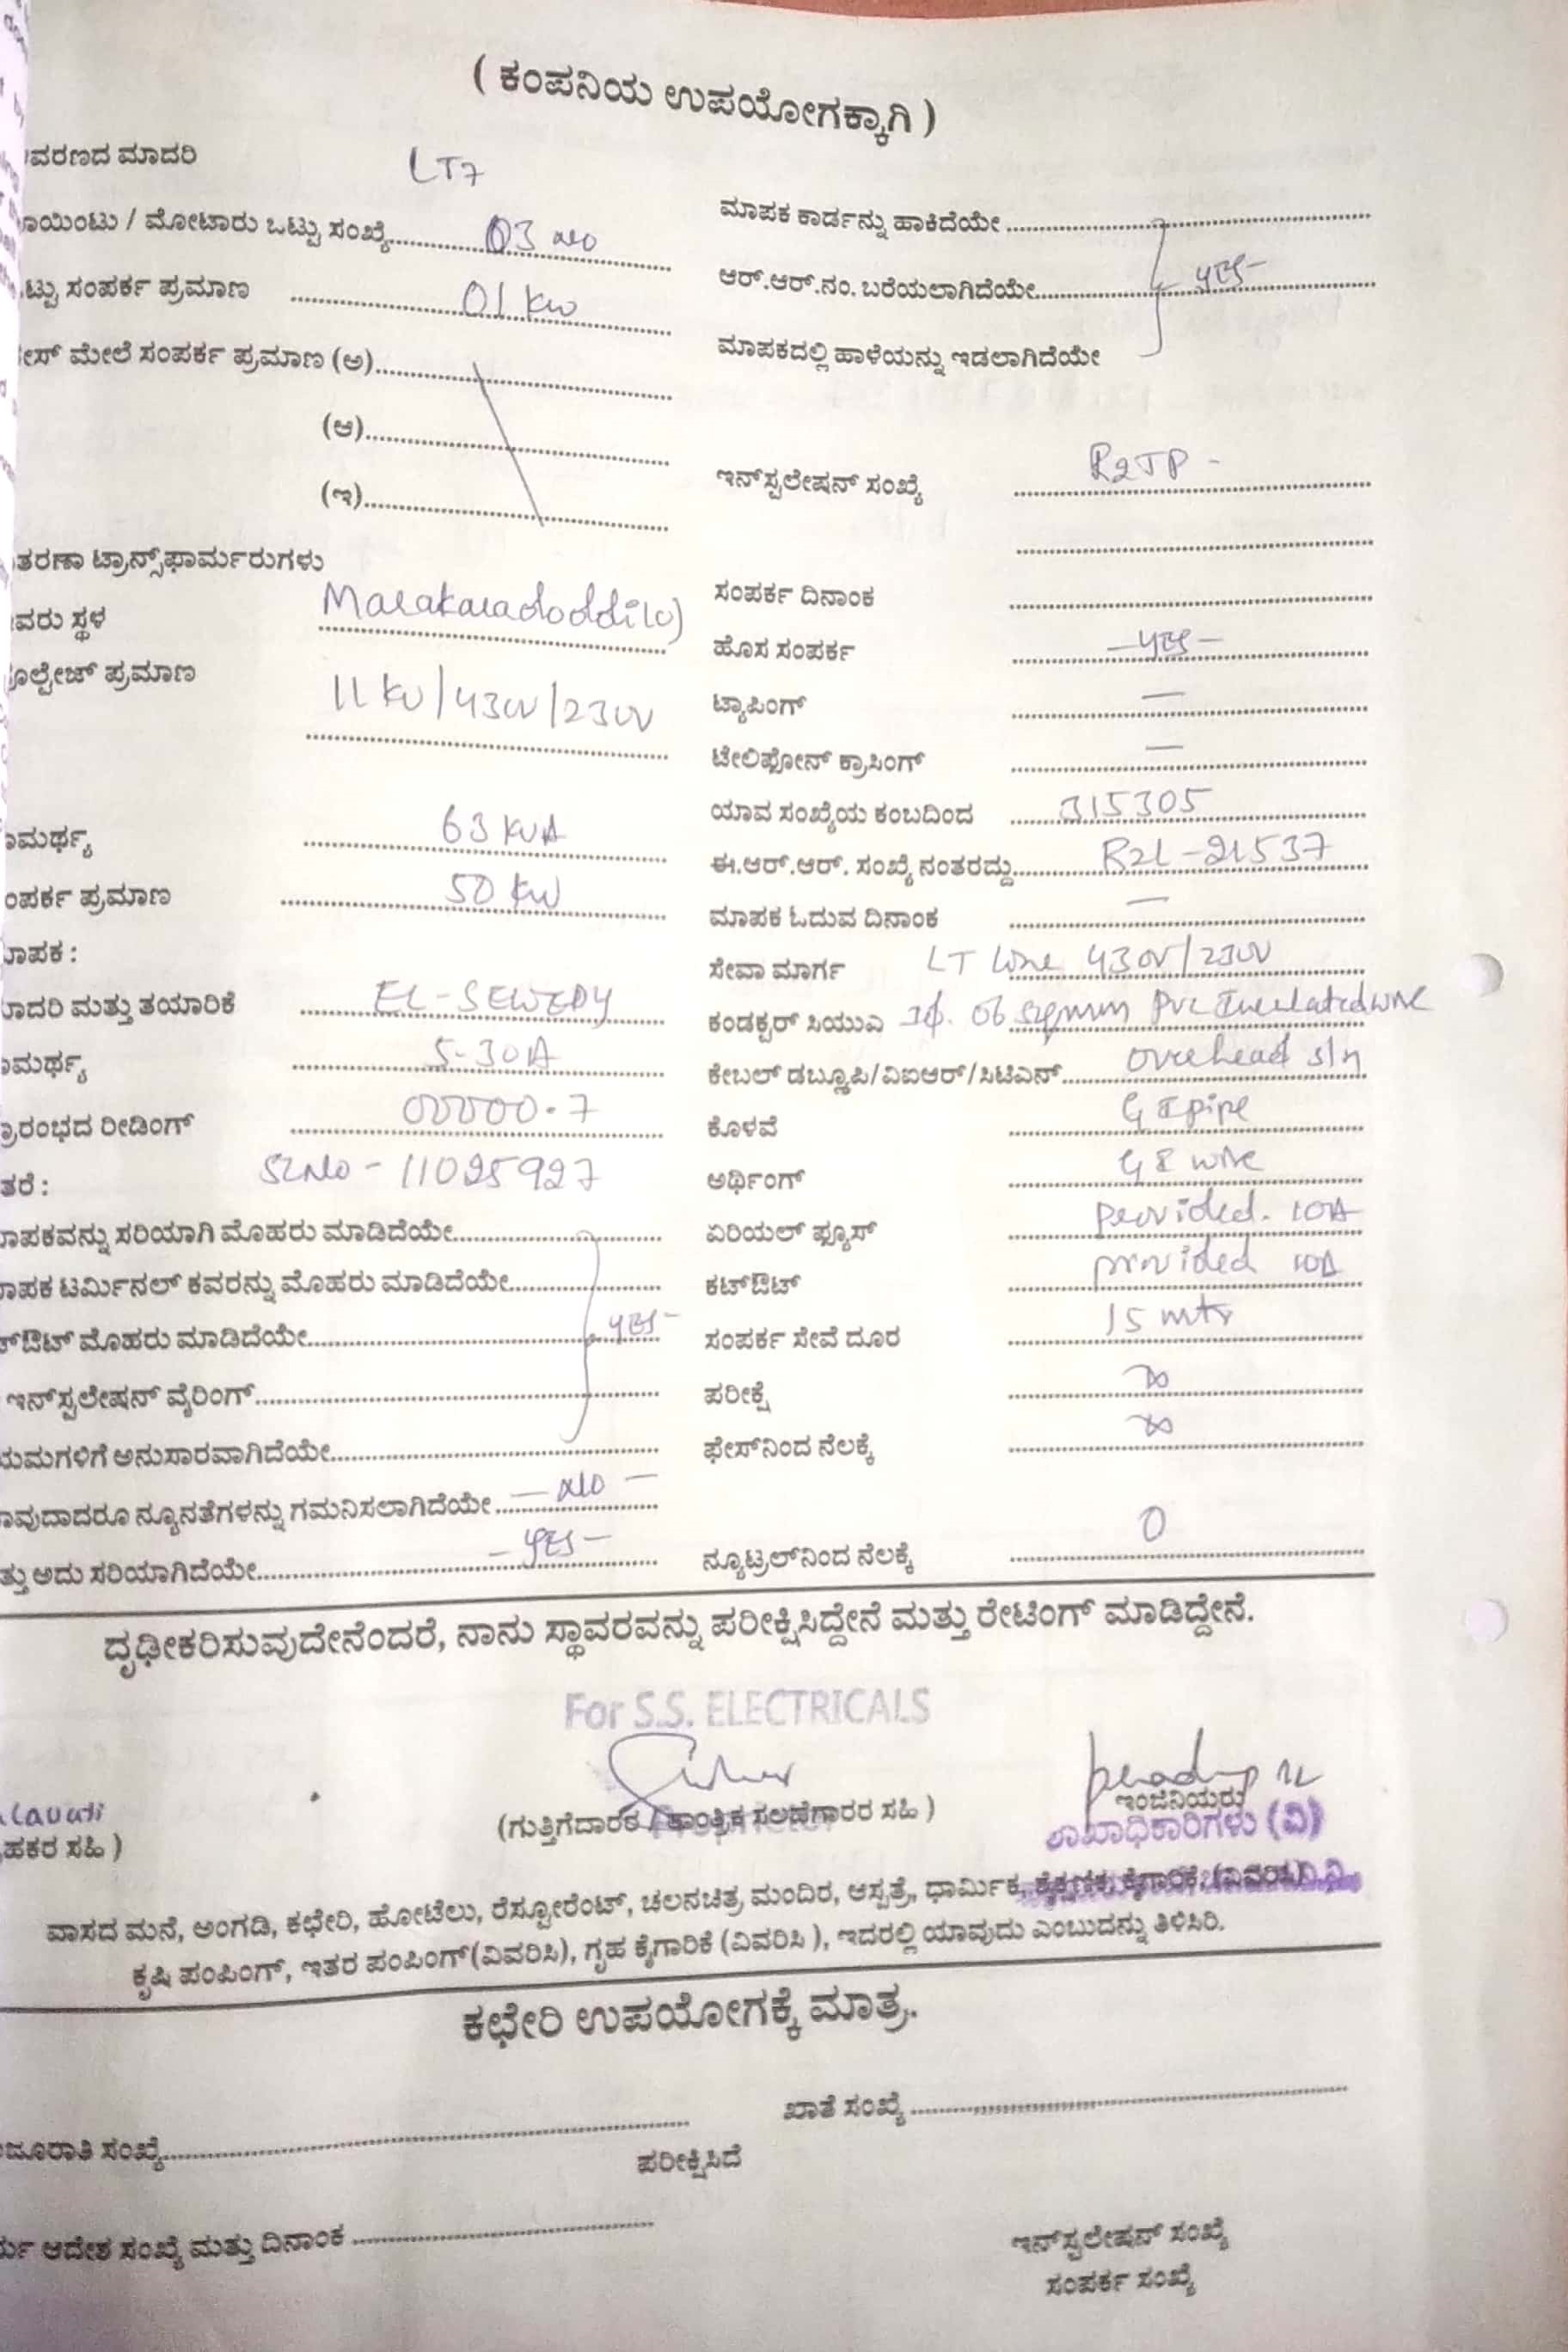 ( ಕಂಪನಿಯ ಉಪಯೋಗಕ್ಕಾಗಿ )
ವರಣದ ಮಾದರಿ LT7
ಾಯಿಂಟು / ಮೋಟಾರು ಒಟ್ಟು ಸಂಖ್ಯೆ 03 no
ಟ್ಟು ಸಂಪರ್ಕ ಪ್ರಮಾಣ 01 kw
ೇಸ್ ಮೇಲೆ ಸಂಪರ್ಕ ಪ್ರಮಾಣ (ಅ)
(ಆ)
(ಇ)
ತರಣಾ ಟ್ರಾನ್ಸ್‌ಫಾರ್ಮರುಗಳು
ವರು ಸ್ಥಳ Marakaradoddi
ೂಲ್ಟೇಜ್ ಪ್ರಮಾಣ 11 KV/430V/230V
ಾಮರ್ಥ್ಯ 63 KVA
ಂಪರ್ಕ ಪ್ರಮಾಣ 50 KW
ಾಪಕ :
ಾದರಿ ಮತ್ತು ತಯಾರಿಕೆ EL-SEWEDY
ಾಮರ್ಥ್ಯ 5-30A
್ರಾರಂಭದ ರೀಡಿಂಗ್ 00000.7
ತರೆ : SLNo - 11025927
ಾಪಕವನ್ನು ಸರಿಯಾಗಿ ಮೊಹರು ಮಾಡಿದೆಯೇ
ಾಪಕ ಟರ್ಮಿನಲ್ ಕವರನ್ನು ಮೊಹರು ಮಾಡಿದೆಯೇ
ಟ್‌ಔಟ್ ಮೊಹರು ಮಾಡಿದೆಯೇ YES-
ಇನ್‌ಸ್ಟಲೇಷನ್ ವೈರಿಂಗ್
ಯಮಗಳಿಗೆ ಅನುಸಾರವಾಗಿದೆಯೇ
ಾವುದಾದರೂ ನ್ಯೂನತೆಗಳನ್ನು ಗಮನಿಸಲಾಗಿದೆಯೇ — NO —
ತ್ತು ಅದು ಸರಿಯಾಗಿದೆಯೇ - YES -
ಮಾಪಕ ಕಾರ್ಡನ್ನು ಹಾಕಿದೆಯೇ
ಆರ್.ಆರ್.ನಂ. ಬರೆಯಲಾಗಿದೆಯೇ YES-
ಮಾಪಕದಲ್ಲಿ ಹಾಳೆಯನ್ನು ಇಡಲಾಗಿದೆಯೇ
ಇನ್‌ಸ್ಟಲೇಷನ್ ಸಂಖ್ಯೆ R2TP -
ಸಂಪರ್ಕ ದಿನಾಂಕ
ಹೊಸ ಸಂಪರ್ಕ - YES -
ಟ್ಯಾಪಿಂಗ್ —
ಟೇಲಿಫೋನ್ ಕ್ರಾಸಿಂಗ್ —
ಯಾವ ಸಂಖ್ಯೆಯ ಕಂಬದಿಂದ 315305
ಈ.ಆರ್.ಆರ್. ಸಂಖ್ಯೆ ನಂತರದ್ದು R2L-21537
ಮಾಪಕ ಓದುವ ದಿನಾಂಕ —
ಸೇವಾ ಮಾರ್ಗ LT Line 430V/230V
ಕಂಡಕ್ಟರ್ ಸಿಯುಎ 1ϕ. 06 sqmm PVC Insulated wire
ಕೇಬಲ್ ಡಬ್ಲೂಪಿ/ವಿಐಆರ್/ಸಿಟಿಎನ್ overhead s/n
ಕೊಳವೆ G I pipe
ಅರ್ಥಿಂಗ್ G I wire
ಏರಿಯಲ್ ಫ್ಯೂಸ್ provided. 10A
ಕಟ್‌ಔಟ್ provided 10A
ಸಂಪರ್ಕ ಸೇವೆ ದೂರ 15 mtr
ಪರೀಕ್ಷೆ ∞
ಫೇಸ್‌ನಿಂದ ನೆಲಕ್ಕೆ ∞
ನ್ಯೂಟ್ರಲ್‌ನಿಂದ ನೆಲಕ್ಕೆ 0
ದೃಢೀಕರಿಸುವುದೇನೆಂದರೆ, ನಾನು ಸ್ಥಾವರವನ್ನು ಪರೀಕ್ಷಿಸಿದ್ದೇನೆ ಮತ್ತು ರೇಟಿಂಗ್ ಮಾಡಿದ್ದೇನೆ.
For S.S. ELECTRICALS
ಹಕರ ಸಹಿ ) (ಗುತ್ತಿಗೆದಾರರ / ತಾಂತ್ರಿಕ ಸಲಹೆಗಾರರ ಸಹಿ ) ಇಂಜಿನಿಯರು
ಶಾಖಾಧಿಕಾರಿಗಳು (ವಿ)
ವಾಸದ ಮನೆ, ಅಂಗಡಿ, ಕಛೇರಿ, ಹೋಟೆಲು, ರೆಸ್ಟೋರೆಂಟ್, ಚಲನಚಿತ್ರ ಮಂದಿರ, ಆಸ್ಪತ್ರೆ, ಧಾರ್ಮಿಕ, ಶೈಕ್ಷಣಿಕ, ಕೈಗಾರಿಕೆ, (ವಿವರಿಸಿ)
ಕೃಷಿ ಪಂಪಿಂಗ್, ಇತರ ಪಂಪಿಂಗ್(ವಿವರಿಸಿ), ಗೃಹ ಕೈಗಾರಿಕೆ (ವಿವರಿಸಿ ), ಇದರಲ್ಲಿ ಯಾವುದು ಎಂಬುದನ್ನು ತಿಳಿಸಿರಿ.
ಕಛೇರಿ ಉಪಯೋಗಕ್ಕೆ ಮಾತ್ರ.
ಜೂರಾತಿ ಸಂಖ್ಯೆ ಖಾತೆ ಸಂಖ್ಯೆ
ಪರೀಕ್ಷಿಸಿದೆ
ರ್ಯ ಆದೇಶ ಸಂಖ್ಯೆ ಮತ್ತು ದಿನಾಂಕ
ಇನ್‌ಸ್ಟಲೇಷನ್ ಸಂಖ್ಯೆ
ಸಂಪರ್ಕ ಸಂಖ್ಯೆ